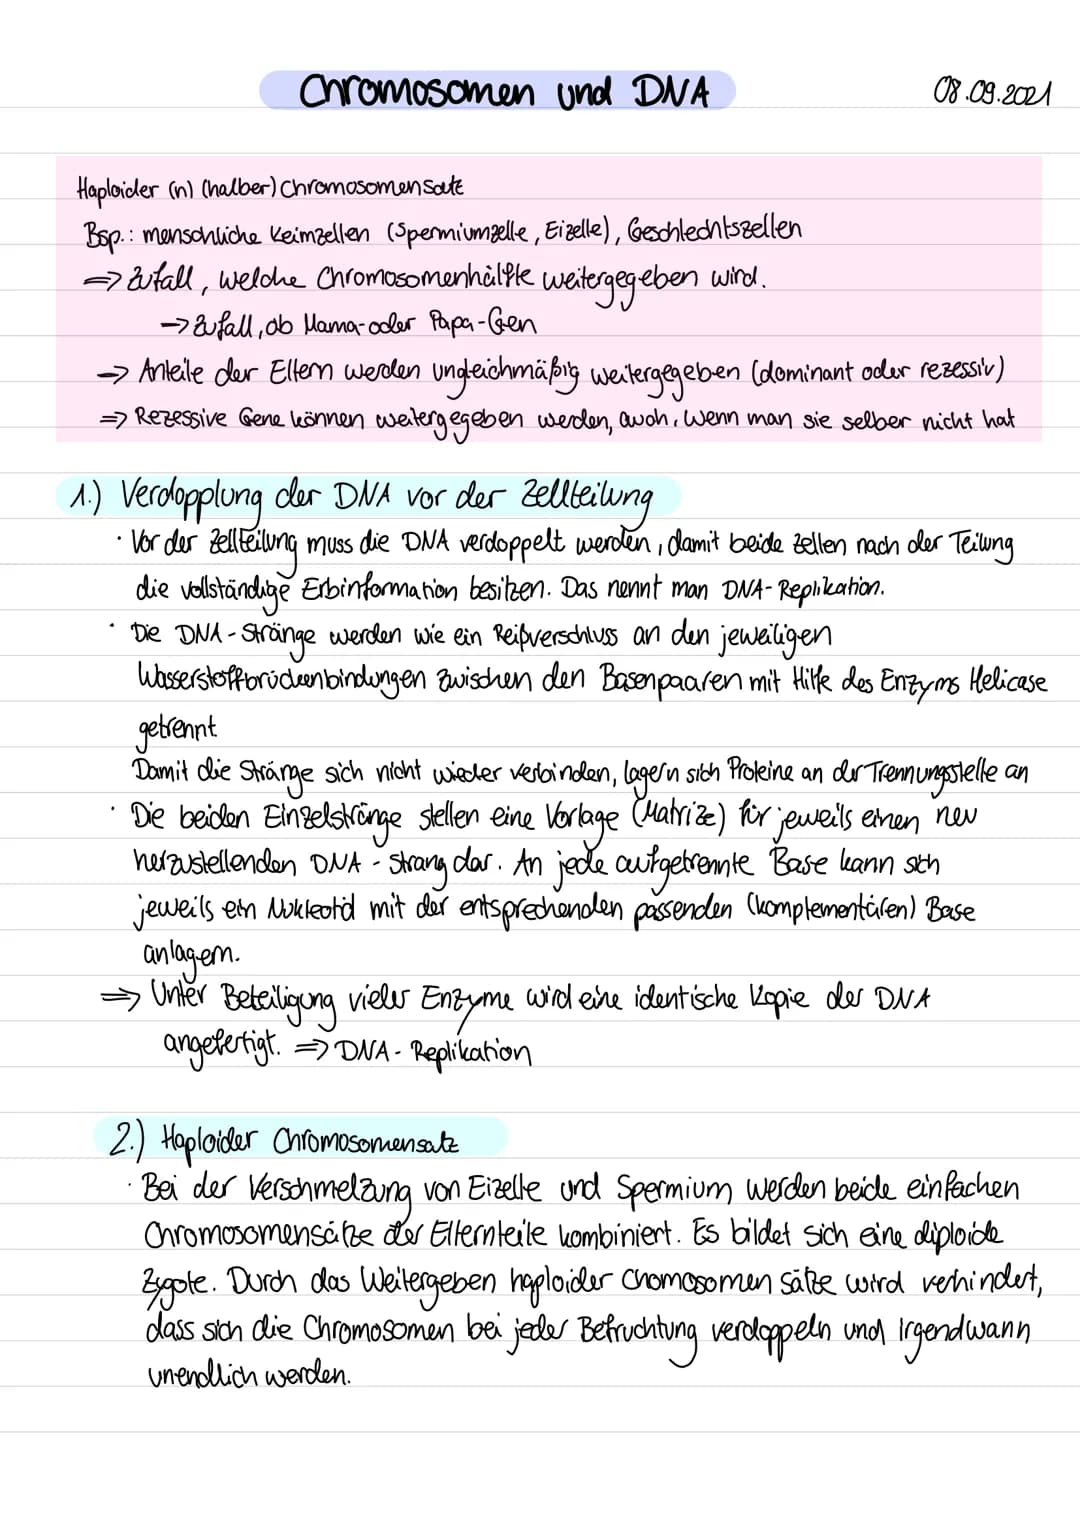 Chromosomen und DNA
08.09.2021
Haploider (n) (halber) Chromosomensatz
Bsp.: menschliche Keimzellen (Spermiumzelle, Eizelle), Geschlechtszellen
=> Zufall, welche Chromosomenhälfte weitergegeben wird.
-> Zufall, ob Mama- oder Papa-Gen
-> Anteile der Eltern werden ungleichmäßig weitergegeben (dominant oder rezessiv)
=> Rezessive Gene können weitergegeben werden, auch, wenn man sie selber nicht hat
1.) Verdopplung der DNA vor der Zellteilung
· Vor der Zellteilung muss die DNA verdoppelt werden, damit beide Zellen nach der Teilung
die vollständige Erbinformation besitzen. Das nennt man DNA-Replikation.
· Die DNA-Stränge werden wie ein Reißverschluss an den jeweiligen
Wasserstoffbrückenbindungen zwischen den Basenpaaren mit Hilfe des Enzyms Helicase
getrennt
Damit die Stränge sich nicht wieder verbinden, lagern sich Proteine an der Trennungsstelle an
· Die beiden Einzelstränge stellen eine Vorlage (Matrize) für jeweils einen neu
herzustellenden DNA-Strang dar. An jede aufgetrennte Base kann sich
jeweils ein Nukleotid mit der entsprechenden passenden (komplementären) Base
anlagern.
=> Unter Beteiligung vieler Enzyme wird eine identische Kopie der DNA
angefertigt. => DNA-Replikation
2.) Haploider Chromosomensatz
· Bei der Verschmelzung von Eizelle und Spermium werden beide einfachen
Chromosomensätze der Elternteile kombiniert. Es bildet sich eine diploide
Zygote. Durch das Weitergeben haploider Chomosomensätze wird verhindert,
dass sich die Chromosomen bei jeder Befruchtung verdoppeln und irgendwann
unendlich werden.